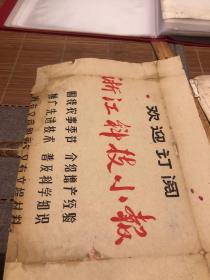 欢迎订阅
浙江科技小报
围绕农事季节 介绍增产经验
推广先进技术 普及科学知识
又有立竿材料